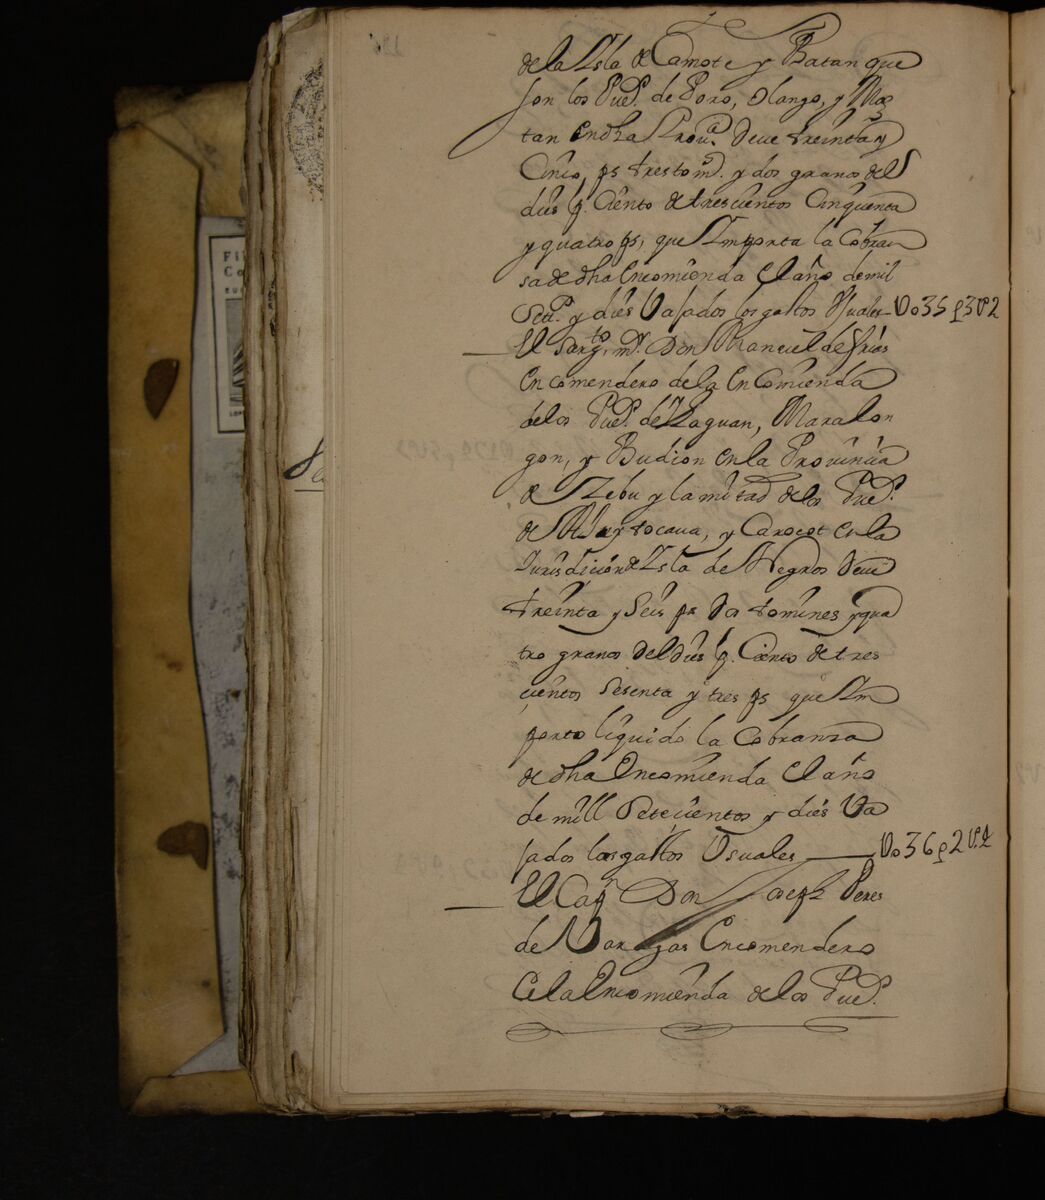 de la Isla de Camote y Batan que
son los Pue.s de Poro, Olango, y Mac
tan en dha Prou.a Deue treinta y
Cinco, ps tres tom.s y dos granos del
dies p. Ciento de trescientos Cinquenta
y quatro ps, que Importa la Cobran
sa de dha Encomienda el año de mil
Sett.s y dies Vajados los gastos Vsuales - Vo35p3tt2
El Sarg.to m.r Don Manuel de frias
Encomendero de la Encomienda
de los Pue.s de Ylaguan, Maralon
gon, y Budion en la Prouincia
de Zebu y la mitad de los Pue.s
de tocaua, y Carocot en la
Jurisdicion de Isla de Negros Deue
treinta y Seis ps Dos tomines y qua
tro granos del dies p. Ciento de tres
cientos Sesenta y tres ps que Im
porto liquido la Cobranza
de dha Encomienda el año
de mill Setecientos y dies Va
jados los gastos Vsuales Vo36p2
El Cap.n Don Joseph Peres
de Encomendero
de la Encomienda de los Pue.s